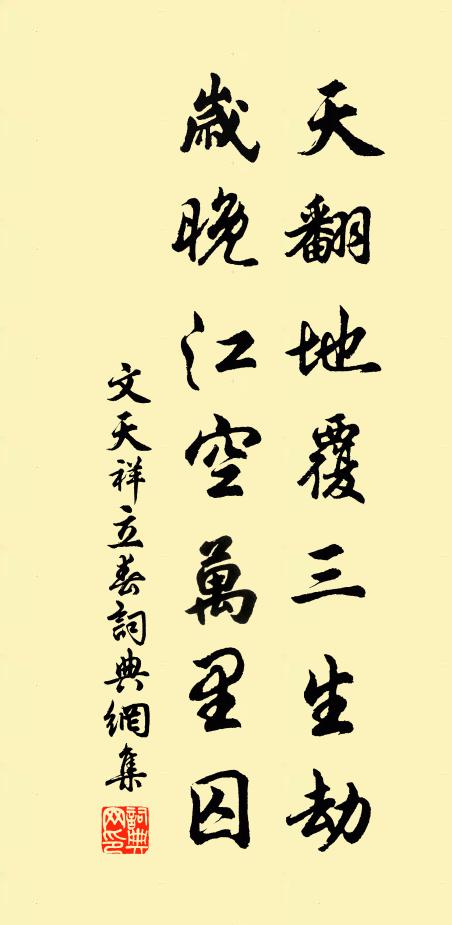 天翻地覆三生劫
歲晚江空萬里囚
文天祥立春詞典網集
詞典網印